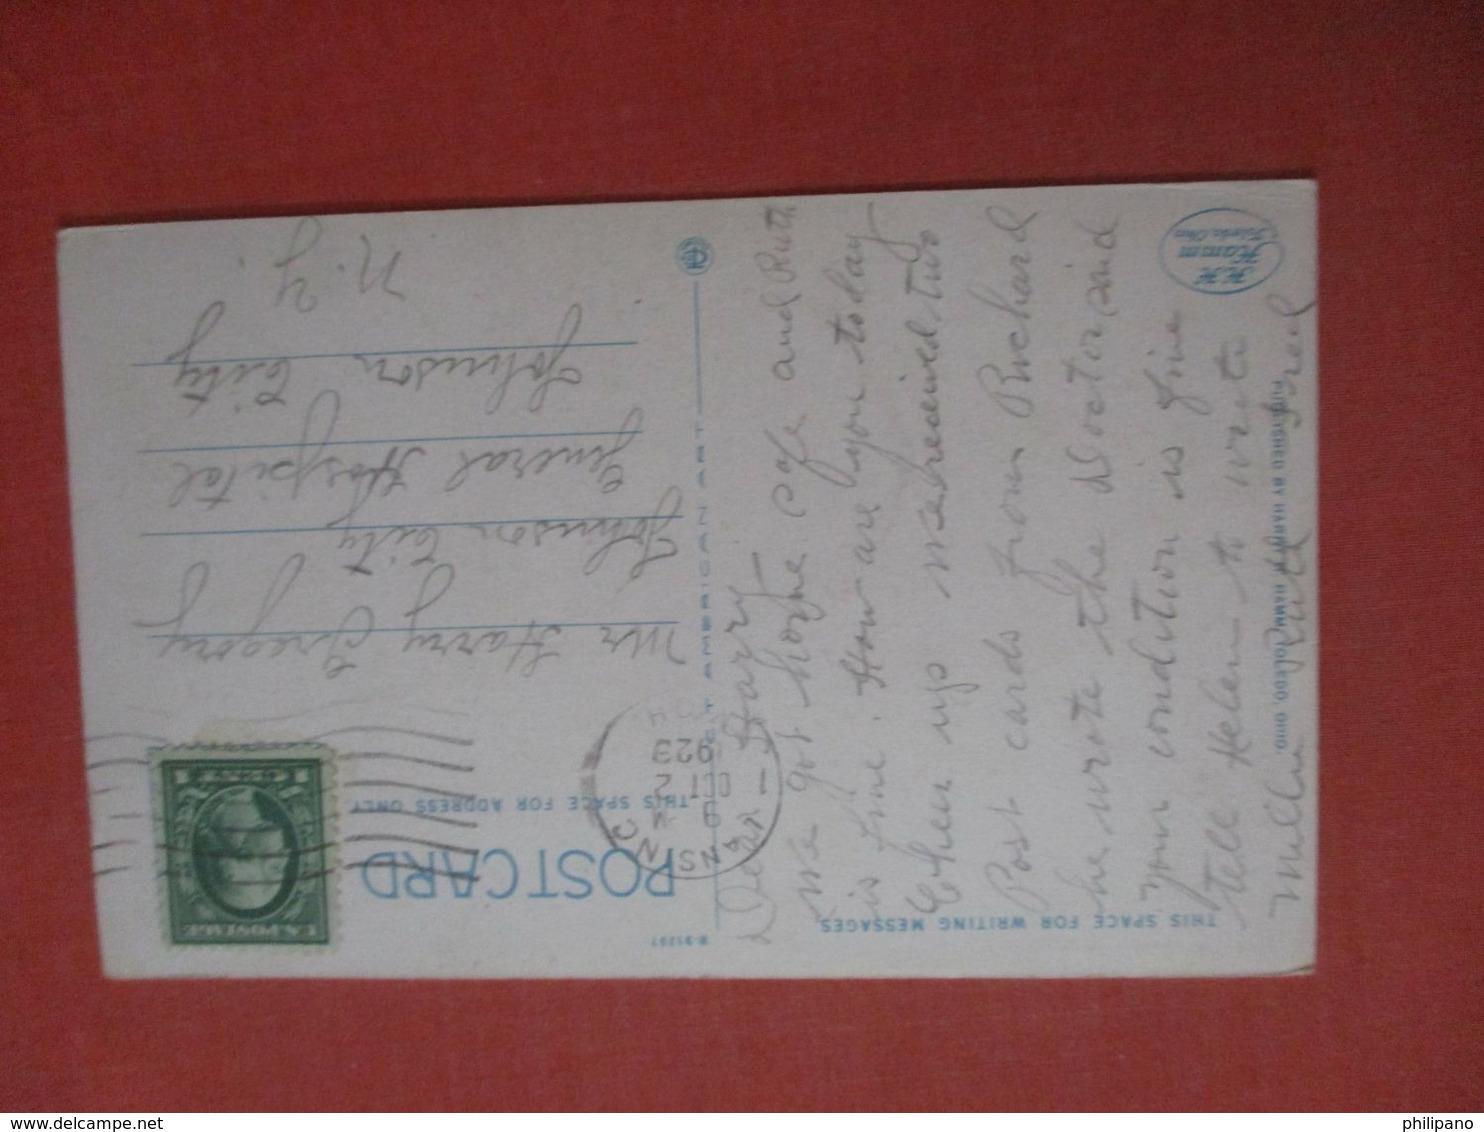 W-91297
POST CARD
THIS SPACE FOR ADDRESS ONLY
THIS SPACE FOR WRITING MESSAGES
Dear Harry –
We got home safe and Ruth
is fine. How are you today
Ellen up we received two
Post cards from Richard
he wrote the Doctor said
your condition is fine
tell Helen to write
Ruth
Mr Harry Gregory
Johnson City
General Hospital
Johnson City
N.Y.
OCT 2
923
U.S. POSTAGE
AMERICAN ART
PUBLISHED BY HARRY HAMM, TOLEDO, OHIO.
H.H.
Hamm
Toledo, Ohio
philipano